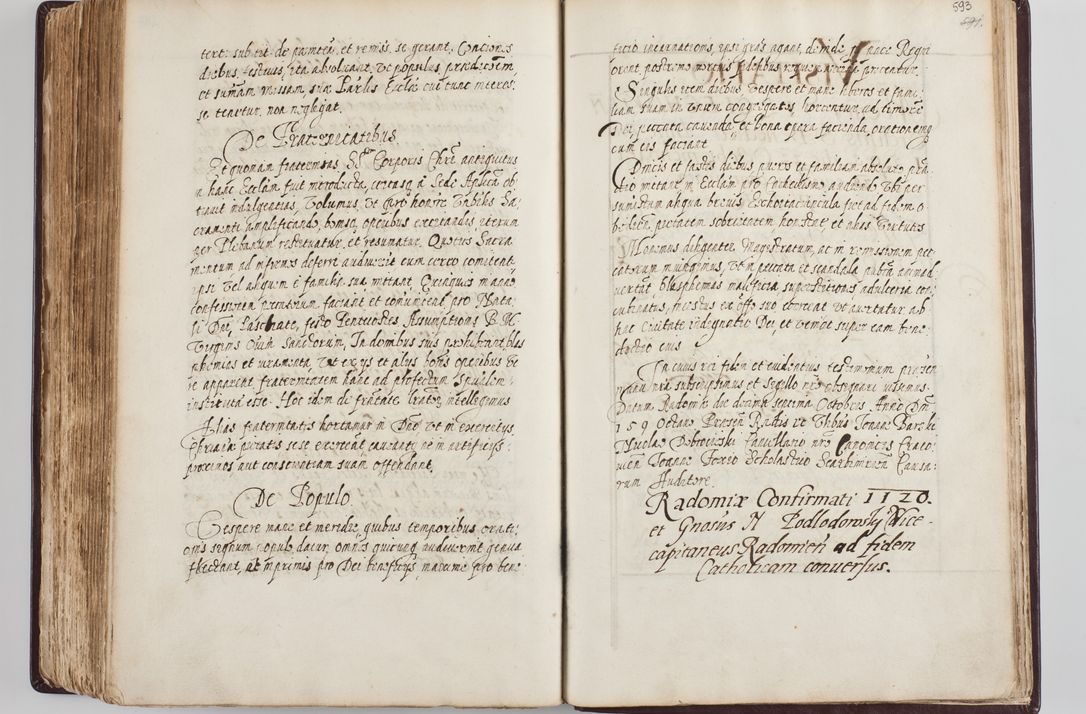 tere: subitit de pœnitea, et remis. se gerant, Conciones
diebus festiuis, ita absoluant, ut populus prædicaõem
et sumam missam, suæ Parlis Eccliæ cui tunc interes:
se tenetur, non negligat.
De Fraternitatibus.
Et quoniam fraternitas SSmi Corporis Chri antiquitus
in hanc Ecclam fuit introducta, certasq a Sede Aplica ob
tinuit indulgentias, Volumus, ut
cramenti amplificando, bonisq, operibus exercendis, iterum
per Plebanum restituatur, et resumatur. Quoties Sacra
mentum ad infirmos deferri audiuerit eum cereo comitent,
ipsi vel aliquem e familia sua mittant. Quinquies in anno
confessionem peccatorum faciant et comunicent pro Nata
li Dni, Paschate, festo Pentecostes, Assumptionis B. M.
Virginis Oium Sanctorum, In domibus suis prohibeant, blas
phemias et iuramenta, ut ex ijs et alijs bonis operibus ve
re appareat fraternitatem hanc ad profectum Spualem
institutã esse. Hoc idem de frãtate intelligimus
Alias fraternitatis hortamur in Dno ut in exercitijs
Chrianæ pietatis sese exerceat, caueant, ne in artificijs
proximos aut conscientiam suam offendant.
De Populo
Vespere mane, et meridie, quibus temporibus, orati:
onis segnum populo datur, omnes quicunq audiuerint genua
flectant, ac inprimis pro Dei beneficijs, maxime pro bene
ficio incarnationis, ipsi grãs agant, deinde pro pace Regni
orent, postremo mortuis fidelibus requiem æternã precentur.
Singulis item diebus vespere et mane liberos et fami:
liam suam in unum congregatos, hortentur, ad timorẽ
Dei, peccata cauenda, et bona opera facienda, orationemq
cum eis faciant
Dnicis et festis diebus pueros et familiam absoluto prã
dio mittant in Ecclam pro Cathechismo audiendo vbi per
aliqua breuis Exhortatiuncula fiet ad fidem o
bedien, pietatem sobrietatem honestatẽ et alias virtutes
Monemus diligenter Magistratum, ac in remissionem pec
catorum iniungimus, ut in peccata et scandala publica animad
uertat, blasphemias maleficia superstitiones adulteria con
cubinatus, incestus ex offo suo coerceat ut auertatur ab
hac Ciuitate indignatio Dei, et veniat super eam bene
dictio eius
In cuius rei fidem et euidentius testimonium præsen
manu nrã subscripsimus et Sigillo nrõ obsignari iussimus.
Datum Radomiæ die decima septima Octobris Anno Dni
159 octauo Præsen Rndis vt Thibus Ioanne Barski
Nicolao Dobrocieski Cancellario nrõ Canonicis Craco
uien Ioanne Foxio Scholastico Scarbimirien Causa:
rum Auditore.
Radomiæ Confirmati 1120.
et Gnosus N Podlodowsky Vice-
capitaneus Radomień ad fidem
Catholicam conuersus.
593